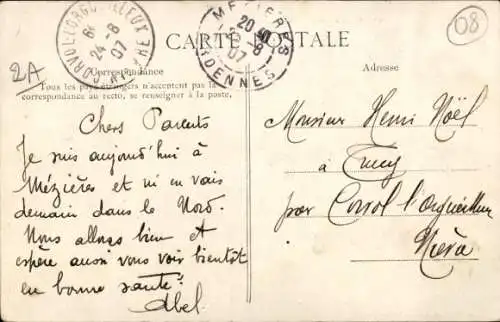 CORVOL-L'ORGUEILLEUX NIÈVRE
24-8
07
MEZIERES
20
-8
07
ARDENNES
08
2A
CARTE POSTALE
Correspondance
Adresse
Tous les pays étrangers n'acceptent pas la
correspondance au recto, se renseigner à la poste.
Chers Parents
Je suis aujourd'hui à
Mézières et m'en vais
demain dans le Nord.
Nous allons bien et
espère aussi vous voir bientôt
en bonne santé.
Abel
Monsieur Henri Noël
à
par Corvol l'Orgueilleux
Nièvre